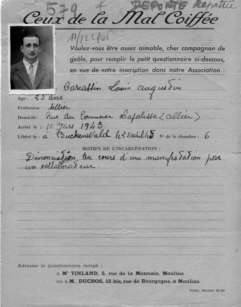 579 + DEPORTÉ Rapatrié
Ceux de la Mal Coiffée
Voulez-vous être assez aimable, cher compagnon de
geôle, pour remplir le petit questionnaire ci-dessous,
en vue de notre inscription dans notre Association.
Louis Augustin
Age : 25 ans
Profession :
Domicile : Rue du Lapalisse (Allier)
Arrêté le : 10 Mars 1943
Libéré le : à Buchenwald 12 avril 45 N° de la chambre : 6
MOTIFS DE L'INCARCÉRATION :
Dénonciation, au cours d'une manifestation par
un collaborateur.
Adresser le questionnaire rempli :
à Mr VINLAND, 5, rue de la Monnaie, Moulins
ou à M. DUCHOS, 15 bis, rue de Bourgogne, à Moulins